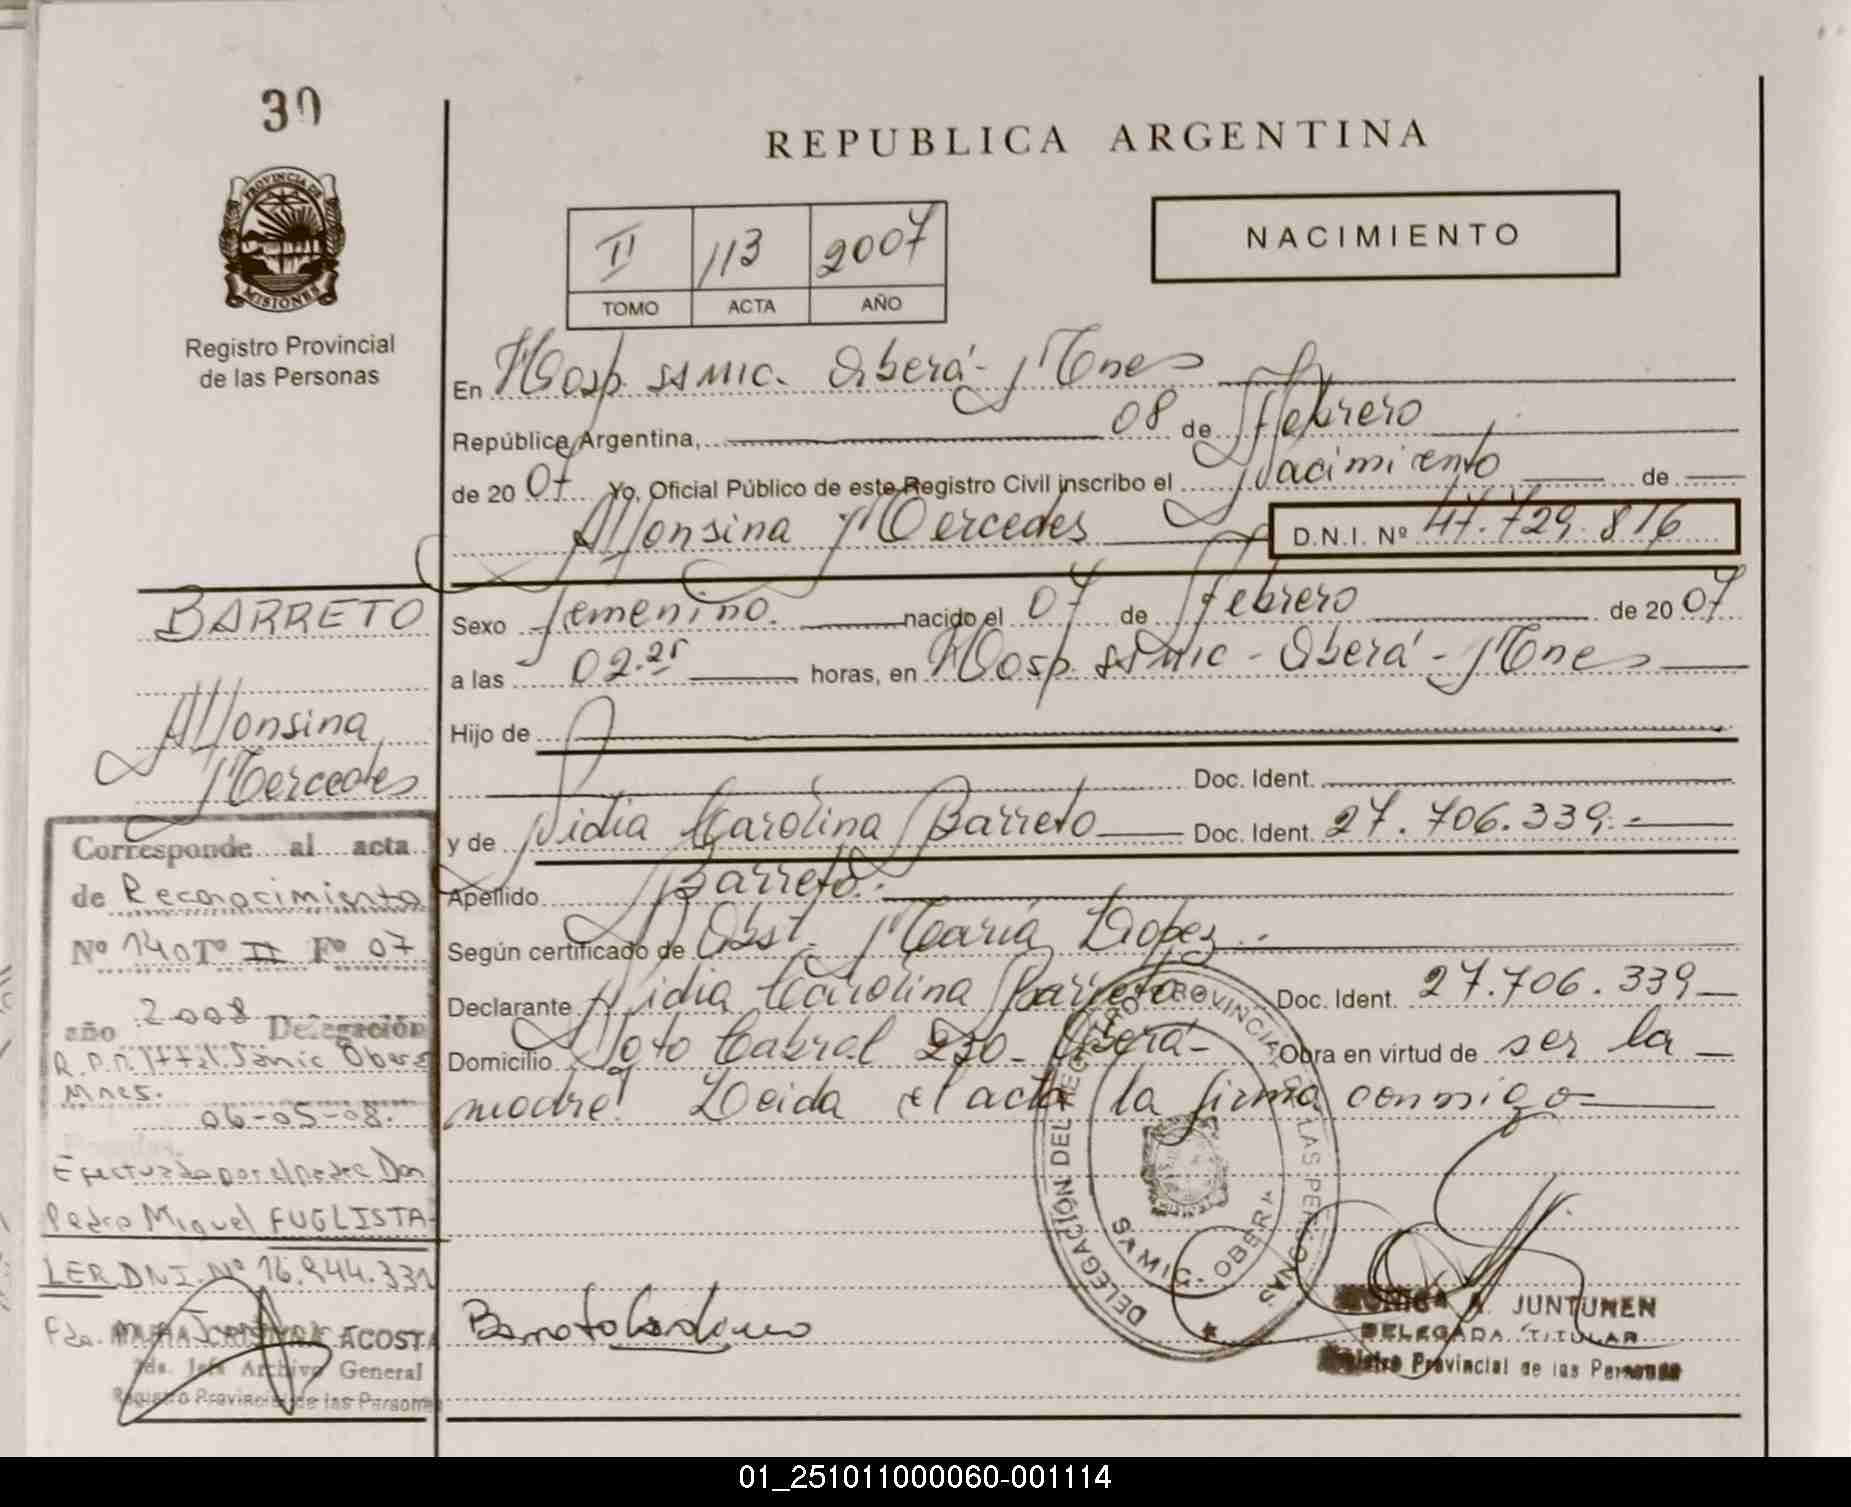 30
PROVINCIA DE
MISIONES
Registro Provincial
de las Personas
REPUBLICA ARGENTINA
II 113 2007
TOMO ACTA AÑO
NACIMIENTO
En Hosp. SAMIC. Oberá - Mnes
República Argentina, 08 de Febrero
de 20 07 Yo, Oficial Público de este Registro Civil inscribo el Nacimiento de
Alfonsina Mercedes D.N.I. Nº 47.729.816
BARRETO
Alfonsina
Mercedes
Sexo femenino. nacido el 07 de febrero de 20 07
a las 02.25 horas, en Hosp. SAMIC - Oberá - Mnes
Hijo de
Doc. Ident.
y de Nidia Carolina Barreto Doc. Ident. 27.706.339.-
Apellido Barreto.-
Según certificado de Obst. María Lopez.-
Declarante Nidia Carolina Barreto Doc. Ident. 27.706.339
Domicilio Soto Cabral 230 - Oberá - Obra en virtud de ser la
madre. Leida el acta la firma conmigo
Corresponde al acta
de Reconocimiento
Nº 140 Tº II Fº 07
año 2008 Delegación
R.P.P. Htal. Samic Obera
Mnes.
06-05-08.
Efectuada por el padre Don
Pedro Miguel FUGLISTA-
LER DNI. Nº 16.944.331
Fdo. MARIA CRISTINA ACOSTA
2da. Jefa Archivo General
Registro Provincial de las Personas
DELEGACIÓN DEL REGISTRO PROVINCIAL DE LAS PERSONAS
SAMIC. OBERA
Barreto Carolina
MONICA A. JUNTUNEN
DELEGADA TITULAR
Registro Provincial de las Personas
01_251011000060-001114